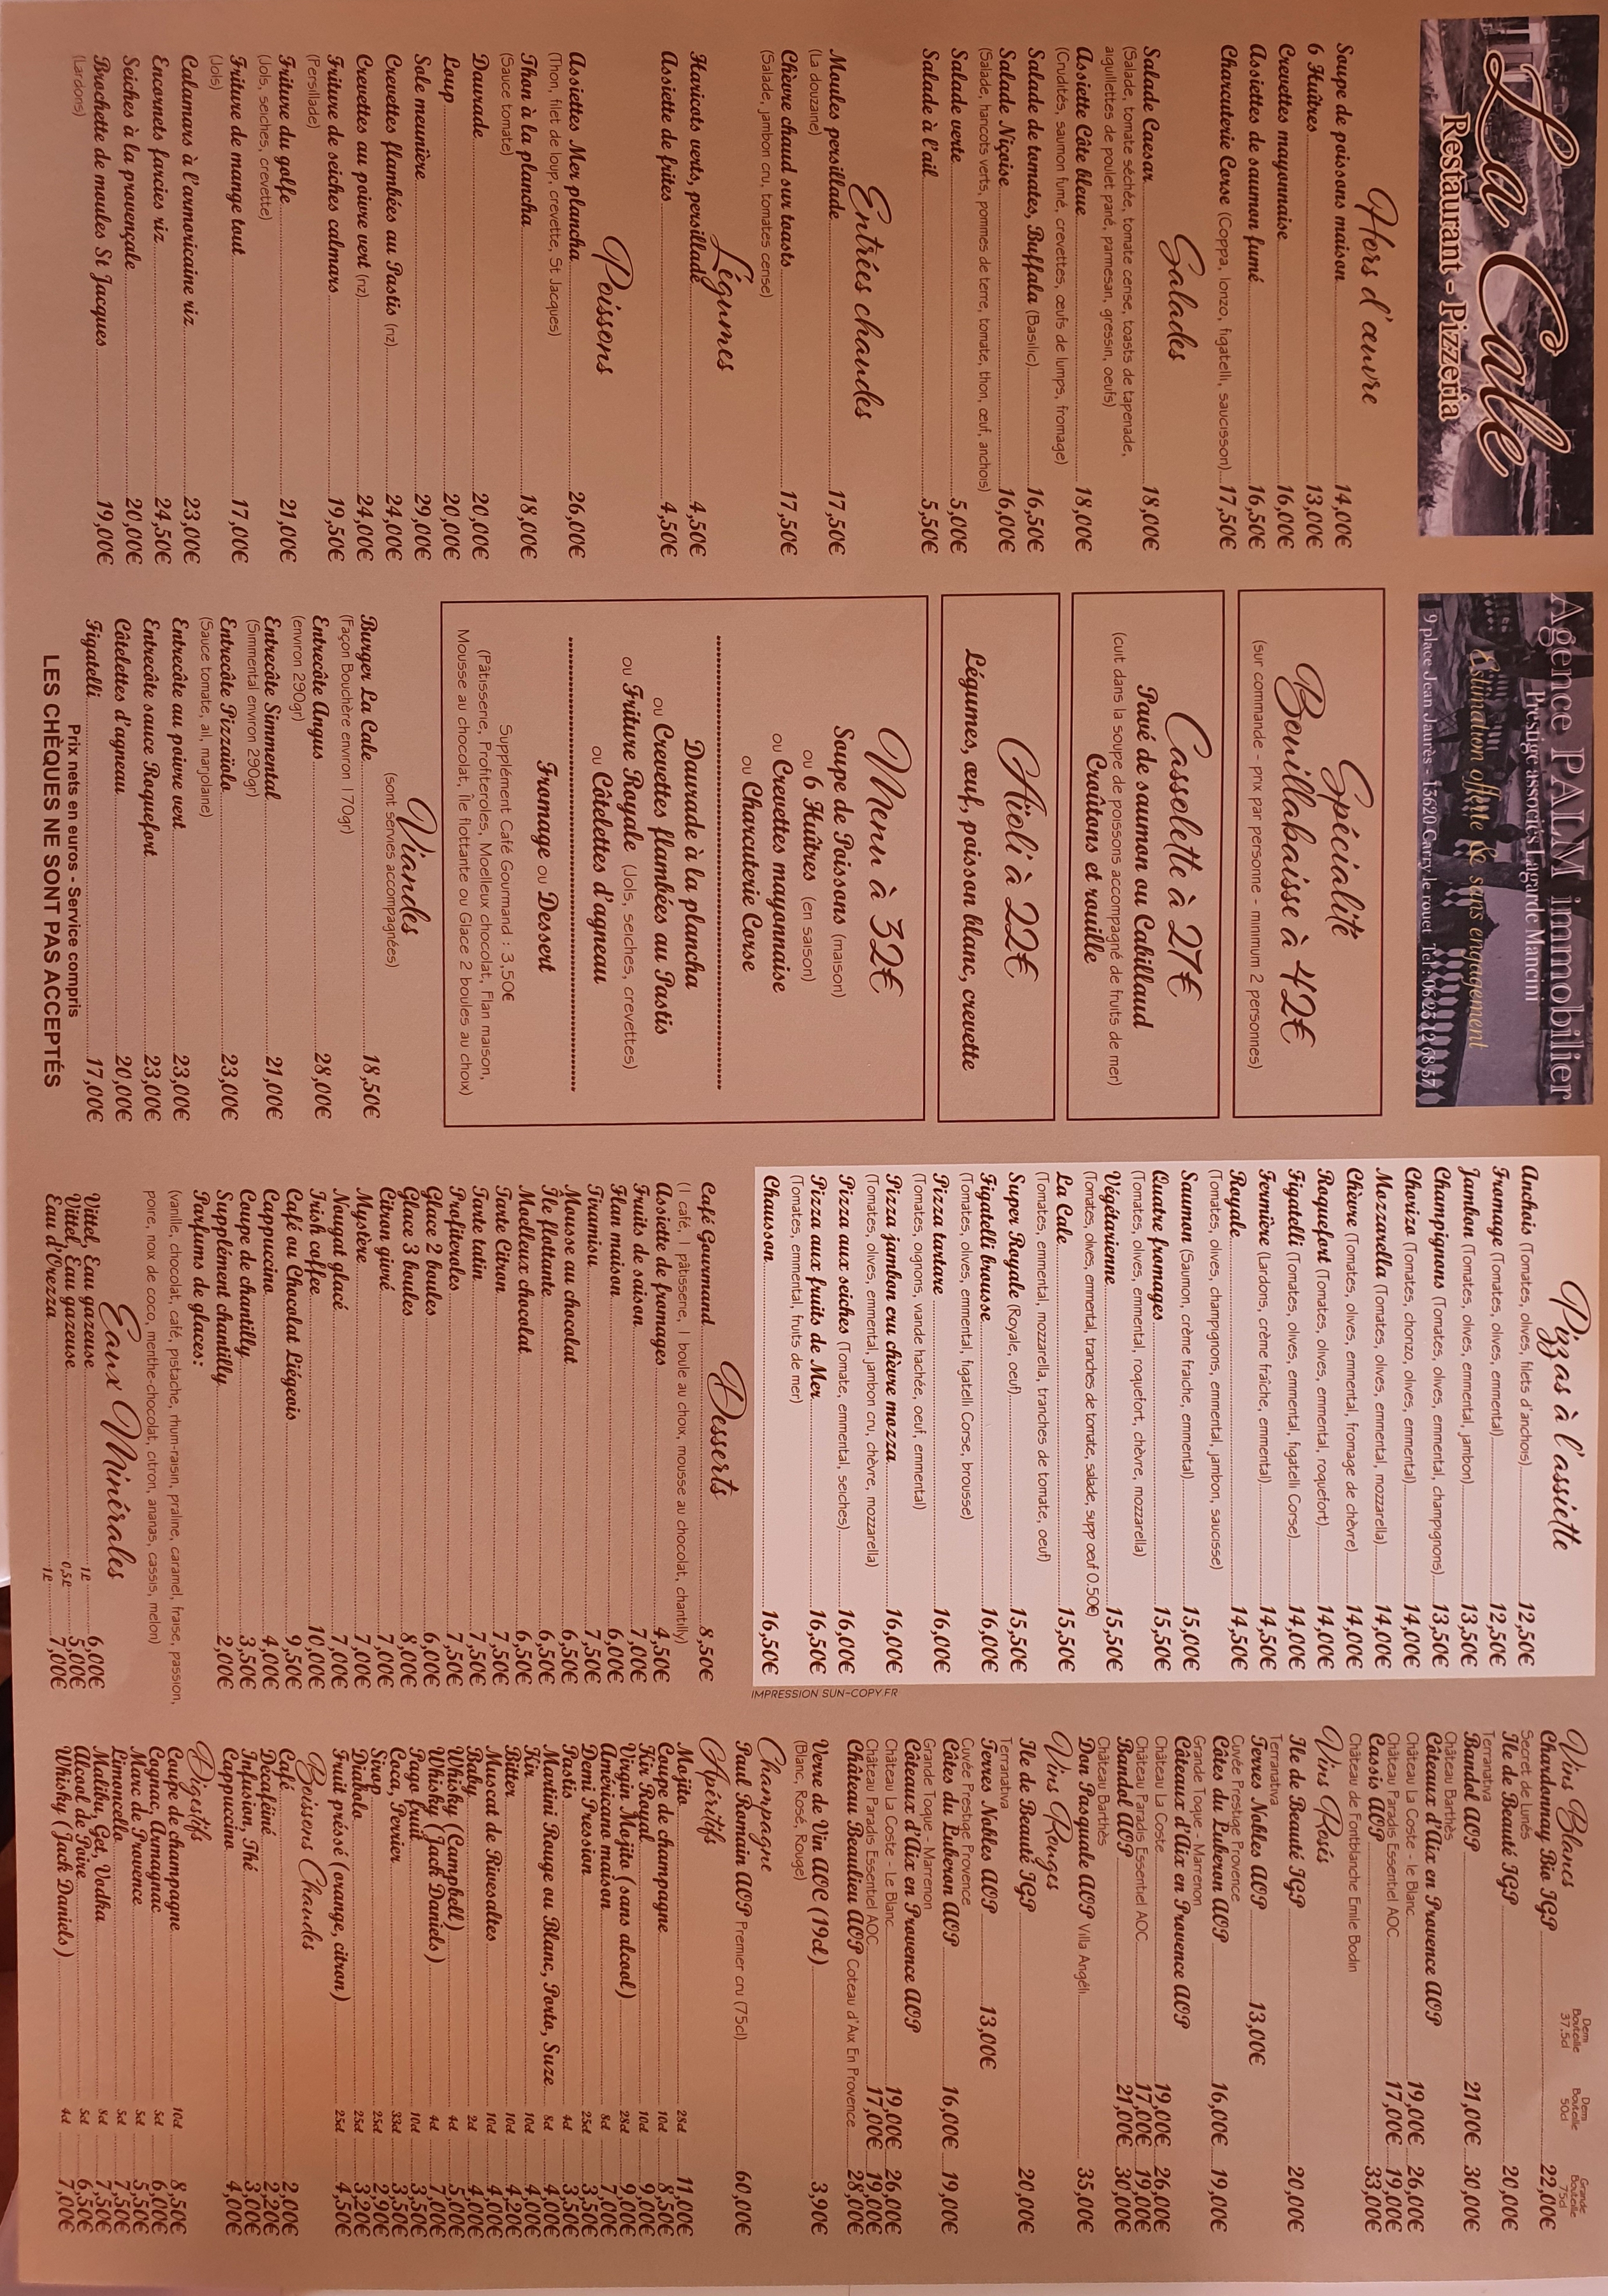 La Cale
Restaurant - Pizzeria
Hors d'œuvre
Soupe de poissons maison 14,00€
6 Huîtres 13,00€
Crevettes mayonnaise 16,00€
Assiettes de saumon fumé 16,50€
Charcuterie Corse (Coppa, lonzo, figatelli, saucisson) 17,50€
Salades
Salade Caesar 18,00€
(Salade, tomate séchée, tomate cerise, toasts de tapenade,
aiguillettes de poulet pané, parmesan, gressin, oeufs)
Assiette Côte bleue 18,00€
(Crudités, saumon fumé, crevettes, œufs de lumps, fromage)
Salade de tomates, Buffala (Basilic) 16,50€
Salade Niçoise 16,00€
(Salade, haricots verts, pommes de terre, tomate, thon, œuf, anchois)
Salade verte 5,00€
Salade à l'ail 5,50€
Entrées chaudes
Moules persillade 17,50€
(La douzaine)
Chèvre chaud sur toasts 17,50€
(Salade, jambon cru, tomates cerise)
Légumes
Haricots verts, persillade 4,50€
Assiette de frites 4,50€
Poissons
Assiettes Mer plancha 26,00€
(Thon, filet de loup, crevette, St Jacques)
Thon à la plancha 18,00€
(Sauce tomate)
Daurade 20,00€
Loup 20,00€
Sole meunière 29,00€
Crevettes flambées au Pastis (riz) 24,00€
Crevettes au poivre vert (riz) 24,00€
Friture de seiches calmars 19,50€
(Persillade)
Friture du golfe 21,00€
(Jols, seiches, crevette)
Friture de mange tout 17,00€
(Jols)
Calamars à l'armoricaine riz 23,00€
Encornets farcies riz 24,50€
Seiches à la provençale 20,00€
Brochette de moules St Jacques 19,00€
(Lardons)
Agence PALM immobilier
Prestige associés Lagarde Mancini
Estimation offerte & sans engagement
9 place Jean Jaurès - 13620 Carry le rouet Tel : 06 23 12 68 57
Spécialité
Bouillabaisse à 42€
(sur commande - prix par personne - minimum 2 personnes)
Cassolette à 27€
Pavé de saumon ou Cabillaud
(cuit dans la soupe de poissons accompagné de fruits de mer)
Croûtons et rouille
Aïoli à 22€
Légumes, œuf, poisson blanc, crevette
Menu à 32€
Soupe de Poissons (maison)
ou 6 Huîtres (en saison)
ou Crevettes mayonnaise
ou Charcuterie Corse
Daurade à la plancha
ou Crevettes flambées au Pastis
ou Friture Royale (Jols, seiches, crevettes)
ou Côtelettes d'agneau
Fromage ou Dessert
Supplément Café Gourmand : 3,50€
(Pâtisserie, Profiteroles, Moelleux chocolat, Flan maison,
Mousse au chocolat, Île flottante ou Glace 2 boules au choix)
Viandes
(sont servies accompagnées)
Burger La Cale 18,50€
(Façon Bouchère environ 170gr)
Entrecôte Angus 28,00€
(environ 290gr)
Entrecôte Simmental 21,00€
(Simmental environ 290gr)
Entrecôte Pizzaïola 23,00€
(Sauce tomate, ail, marjolaine)
Entrecôte au poivre vert 23,00€
Entrecôte sauce Roquefort 23,00€
Côtelettes d'agneau 20,00€
Figatelli 17,00€
Prix nets en euros - Service compris
LES CHÈQUES NE SONT PAS ACCEPTÉS
Pizzas à l'assiette
Anchois (Tomates, olives, filets d'anchois) 12,50€
Fromage (Tomates, olives, emmental) 12,50€
Jambon (Tomates, olives, emmental, jambon) 13,50€
Champignons (Tomates, olives, emmental, champignons) 13,50€
Chorizo (Tomates, chorizo, olives, emmental) 14,00€
Mozzarella (Tomates, olives, emmental, mozzarella) 14,00€
Chèvre (Tomates, olives, emmental, fromage de chèvre) 14,00€
Roquefort (Tomates, olives, emmental, roquefort) 14,00€
Figatelli (Tomates, olives, emmental, figatelli Corse) 14,00€
Fermière (Lardons, crème fraîche, emmental) 14,50€
Royale 14,50€
(Tomates, olives, champignons, emmental, jambon, saucisse)
Saumon (Saumon, crème fraiche, emmental) 15,00€
Quatre fromages 15,50€
(Tomates, olives, emmental, roquefort, chèvre, mozzarella)
Végétarienne 15,50€
(Tomates, olives, emmental, tranches de tomate, salade, supp oeuf 0.50€)
La Cale 15,50€
(Tomates, emmental, mozzarella, tranches de tomate, oeuf)
Super Royale (Royale, oeuf) 15,50€
Figatelli brousse 16,00€
(Tomates, olives, emmental, figatelli Corse, brousse)
Pizza tartare 16,00€
(Tomates, oignons, viande hachée, oeuf, emmental)
Pizza jambon cru chèvre mozza 16,00€
(Tomates, olives, emmental, jambon cru, chèvre, mozzarella)
Pizza aux seiches (Tomate, emmental, seiches) 16,00€
Pizza aux fruits de Mer 16,50€
(Tomates, emmental, fruits de mer)
Chausson 16,50€
IMPRESSION SUN-COPY.FR
Desserts
Café Gourmand 8,50€
(1 café, 1 pâtisserie, 1 boule au choix, mousse au chocolat, chantilly)
Assiette de fromages 4,50€
Fruits de saison 7,00€
Flan maison 6,00€
Tiramisu 7,50€
Mousse au chocolat 6,50€
Île flottante 6,50€
Moelleux chocolat 6,50€
Tarte Citron 7,50€
Tarte tatin 7,50€
Profiteroles 7,50€
Glace 2 boules 6,00€
Glace 3 boules 8,00€
Citron givré 7,00€
Mystère 7,00€
Nougat glacé 7,00€
Irish coffee 10,00€
Café ou Chocolat Liégeois 9,50€
Cappuccino 4,00€
Coupe de chantilly 3,50€
Supplément chantilly 2,00€
Parfums de glaces:
(vanille, chocolat, café, pistache, rhum-raisin, praline, caramel, fraise, passion,
poire, noix de coco, menthe-chocolat, citron, ananas, cassis, melon)
Eaux Minérales
Vittel, Eau gazeuse 1L 6,00€
Vittel, Eau gazeuse 0,5L 5,00€
Eau d'Orezza 1L 7,00€
Vins Blancs
Demi Bouteille 37.5cl
Demi Bouteille 50cl
Grande Bouteille 75cl
Chardonnay Bio IGP 22,00€
Secret de Lunès
Ile de Beauté IGP 20,00€
Terranativa
Bandol AOP 21,00€ 30,00€
Château Barthès
Côteaux d'Aix en Provence AOP
Château La Coste - le Blanc 19,00€ 26,00€
Château Paradis Essentiel AOC 17,00€ 19,00€
Cassis AOP 33,00€
Château de Fontblanche Emile Bodin
Vins Rosés
Ile de Beauté IGP 20,00€
Terranativa
Terres Nobles AOP 13,00€
Cuvée Prestige Provence
Côtes du Luberon AOP 16,00€ 19,00€
Grande Toque - Marrenon
Côteaux d'Aix en Provence AOP
Château La Coste 19,00€ 26,00€
Château Paradis Essentiel AOC 17,00€ 19,00€
Bandol AOP 21,00€ 30,00€
Château Barthès
Don Pasquale AOP Villa Angéli 35,00€
Vins Rouges
Ile de Beauté IGP 20,00€
Terranativa
Terres Nobles AOP 13,00€
Cuvée Prestige Provence
Côtes du Luberon AOP 16,00€ 19,00€
Grande Toque - Marrenon
Côteaux d'Aix en Provence AOP
Château La Coste - Le Blanc 19,00€ 26,00€
Château Paradis Essentiel AOC 17,00€ 19,00€
Château Beaulieu AOP Coteau d'Aix En Provence 28,00€
Verre de Vin AOC (19cl) 3,90€
(Blanc, Rosé, Rouge)
Champagne
Paul Romain AOP Premier cru (75cl) 60,00€
Apéritifs
Mojito 28cl 11,00€
Coupe de champagne 10cl 8,50€
Kir Royal 10cl 9,00€
Virgin Mojito (sans alcool) 28cl 9,00€
Américano maison 8cl 7,00€
Demi Pression 25cl 3,50€
Pastis 4cl 3,50€
Martini Rouge ou Blanc, Porto, Suze 8cl 4,00€
Kir 10cl 4,00€
Bitter 10cl 4,20€
Muscat de Rivesaltes 10cl 4,00€
Baby 2cl 4,00€
Whisky (Campbell) 4cl 5,00€
Whisky (Jack Daniels) 4cl 7,00€
Pago fruit 10cl 3,50€
Coca, Perrier 33cl 3,50€
Sirop 25cl 2,90€
Diabolo 25cl 3,20€
Fruit préssé (orange, citron) 25cl 4,50€
Boissons Chaudes
Café 2,00€
Décaféiné 2,20€
Infusion, Thé 3,00€
Cappuccino 4,00€
Digestifs
Coupe de champagne 10cl 8,50€
Cognac, Armagnac 5cl 6,00€
Marc de Provence 5cl 5,50€
Limoncello 5cl 7,50€
Malibu, Get, Vodka 8cl 7,50€
Alcool de Poire 5cl 6,50€
Whisky (Jack Daniels) 4cl 7,00€